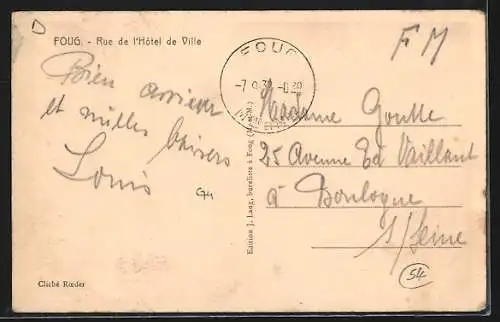 D
FOUG. - Rue de l'Hôtel de Ville
Bien arrivé
et milles baisers
Louis
G4
FOUG
-7 9 39 -0 20
Edition J. Lang, buraliste à Foug (M.-et-M.)
FM
Madame Goutte
25 Avenue Ed Vaillant
à Boulogne
s/Seine
54
Cliché Rœder